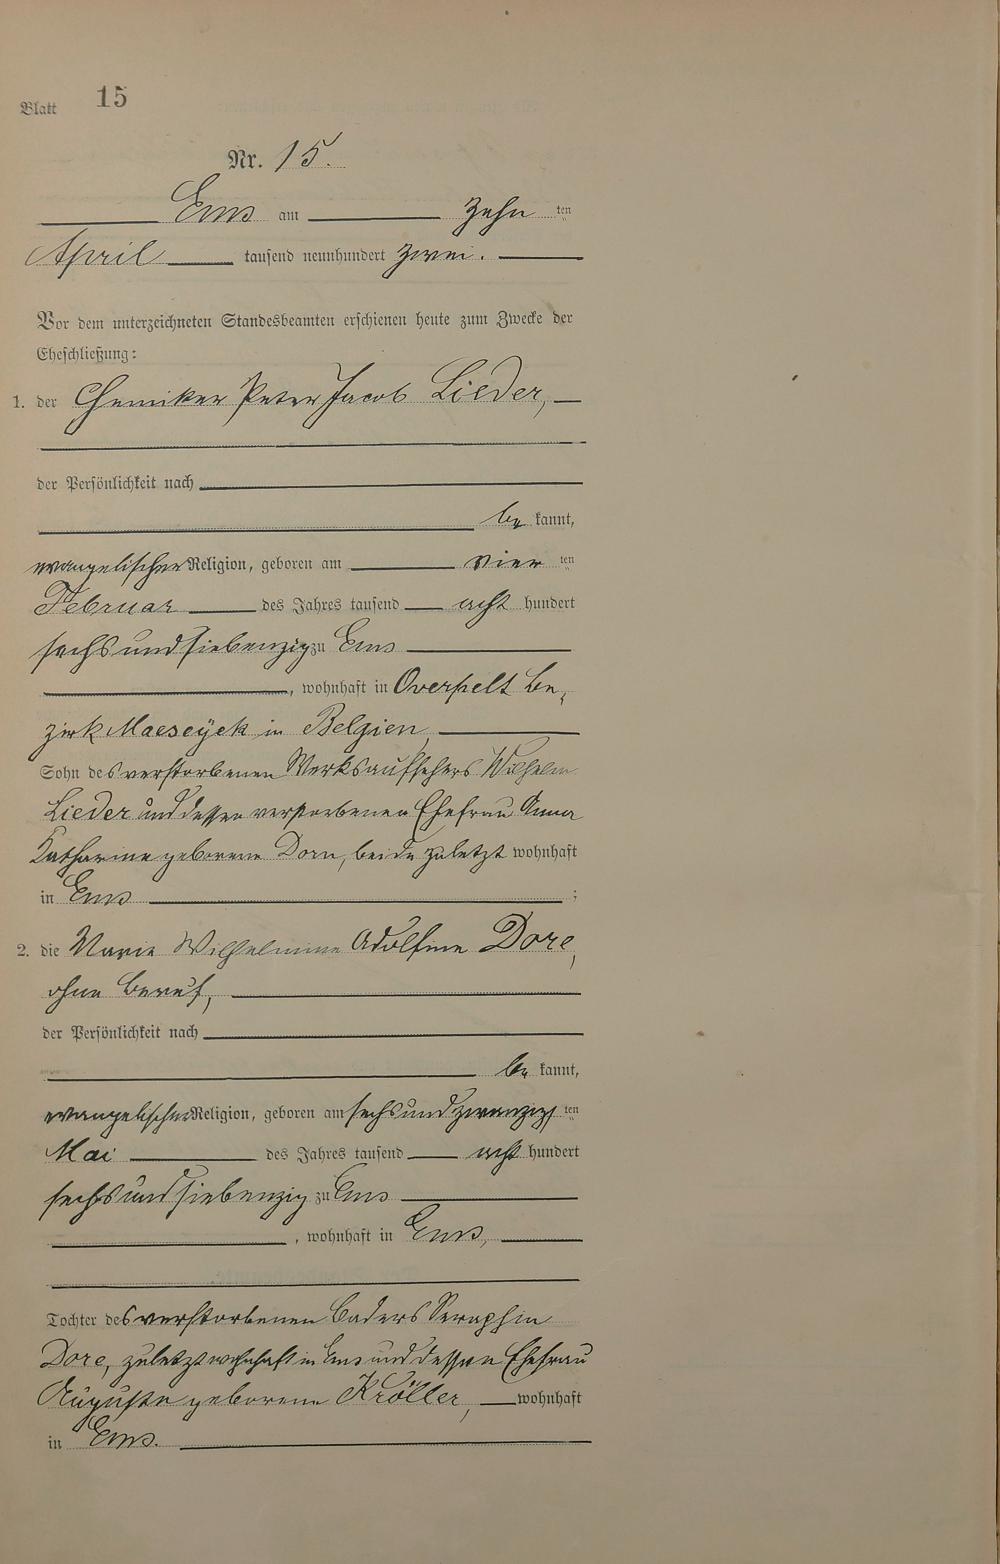 Blatt 15
Nr. 15.
Ems am zehn ten
April tausend neunhundert zwei.
Vor dem unterzeichneten Standesbeamten erschienen heute zum Zwecke der
Eheschließung:
1. der Chemiker Peter Jacob Lieder,
der Persönlichkeit nach
be kannt,
evangelischer Religion, geboren am vier ten
Februar des Jahres tausend acht hundert
sechs und siebenzig zu Ems
, wohnhaft in Overpelt Be,
zirk Maeseyck in Belgien,
Sohn des verstorbenen Werksaufsehers Wilhelm
Lieder und dessen verstorbenen Ehefrau Anna
Katharine geborene Dorn, beide zuletzt wohnhaft
in Ems ;
2. die Marie Wilhelmine Adolfine Dore,
ohne Beruf,
der Persönlichkeit nach
be kannt,
evangelischer Religion, geboren am sechs und zwanzigs ten
Mai des Jahres tausend acht hundert
sechs und siebenzig zu Ems
, wohnhaft in Ems,
Tochter des verstorbenen Baders Seraphin
Dore, zuletzt wohnhaft in Ems und dessen Ehefrau
Auguste geborene Kröller, wohnhaft
in Ems.